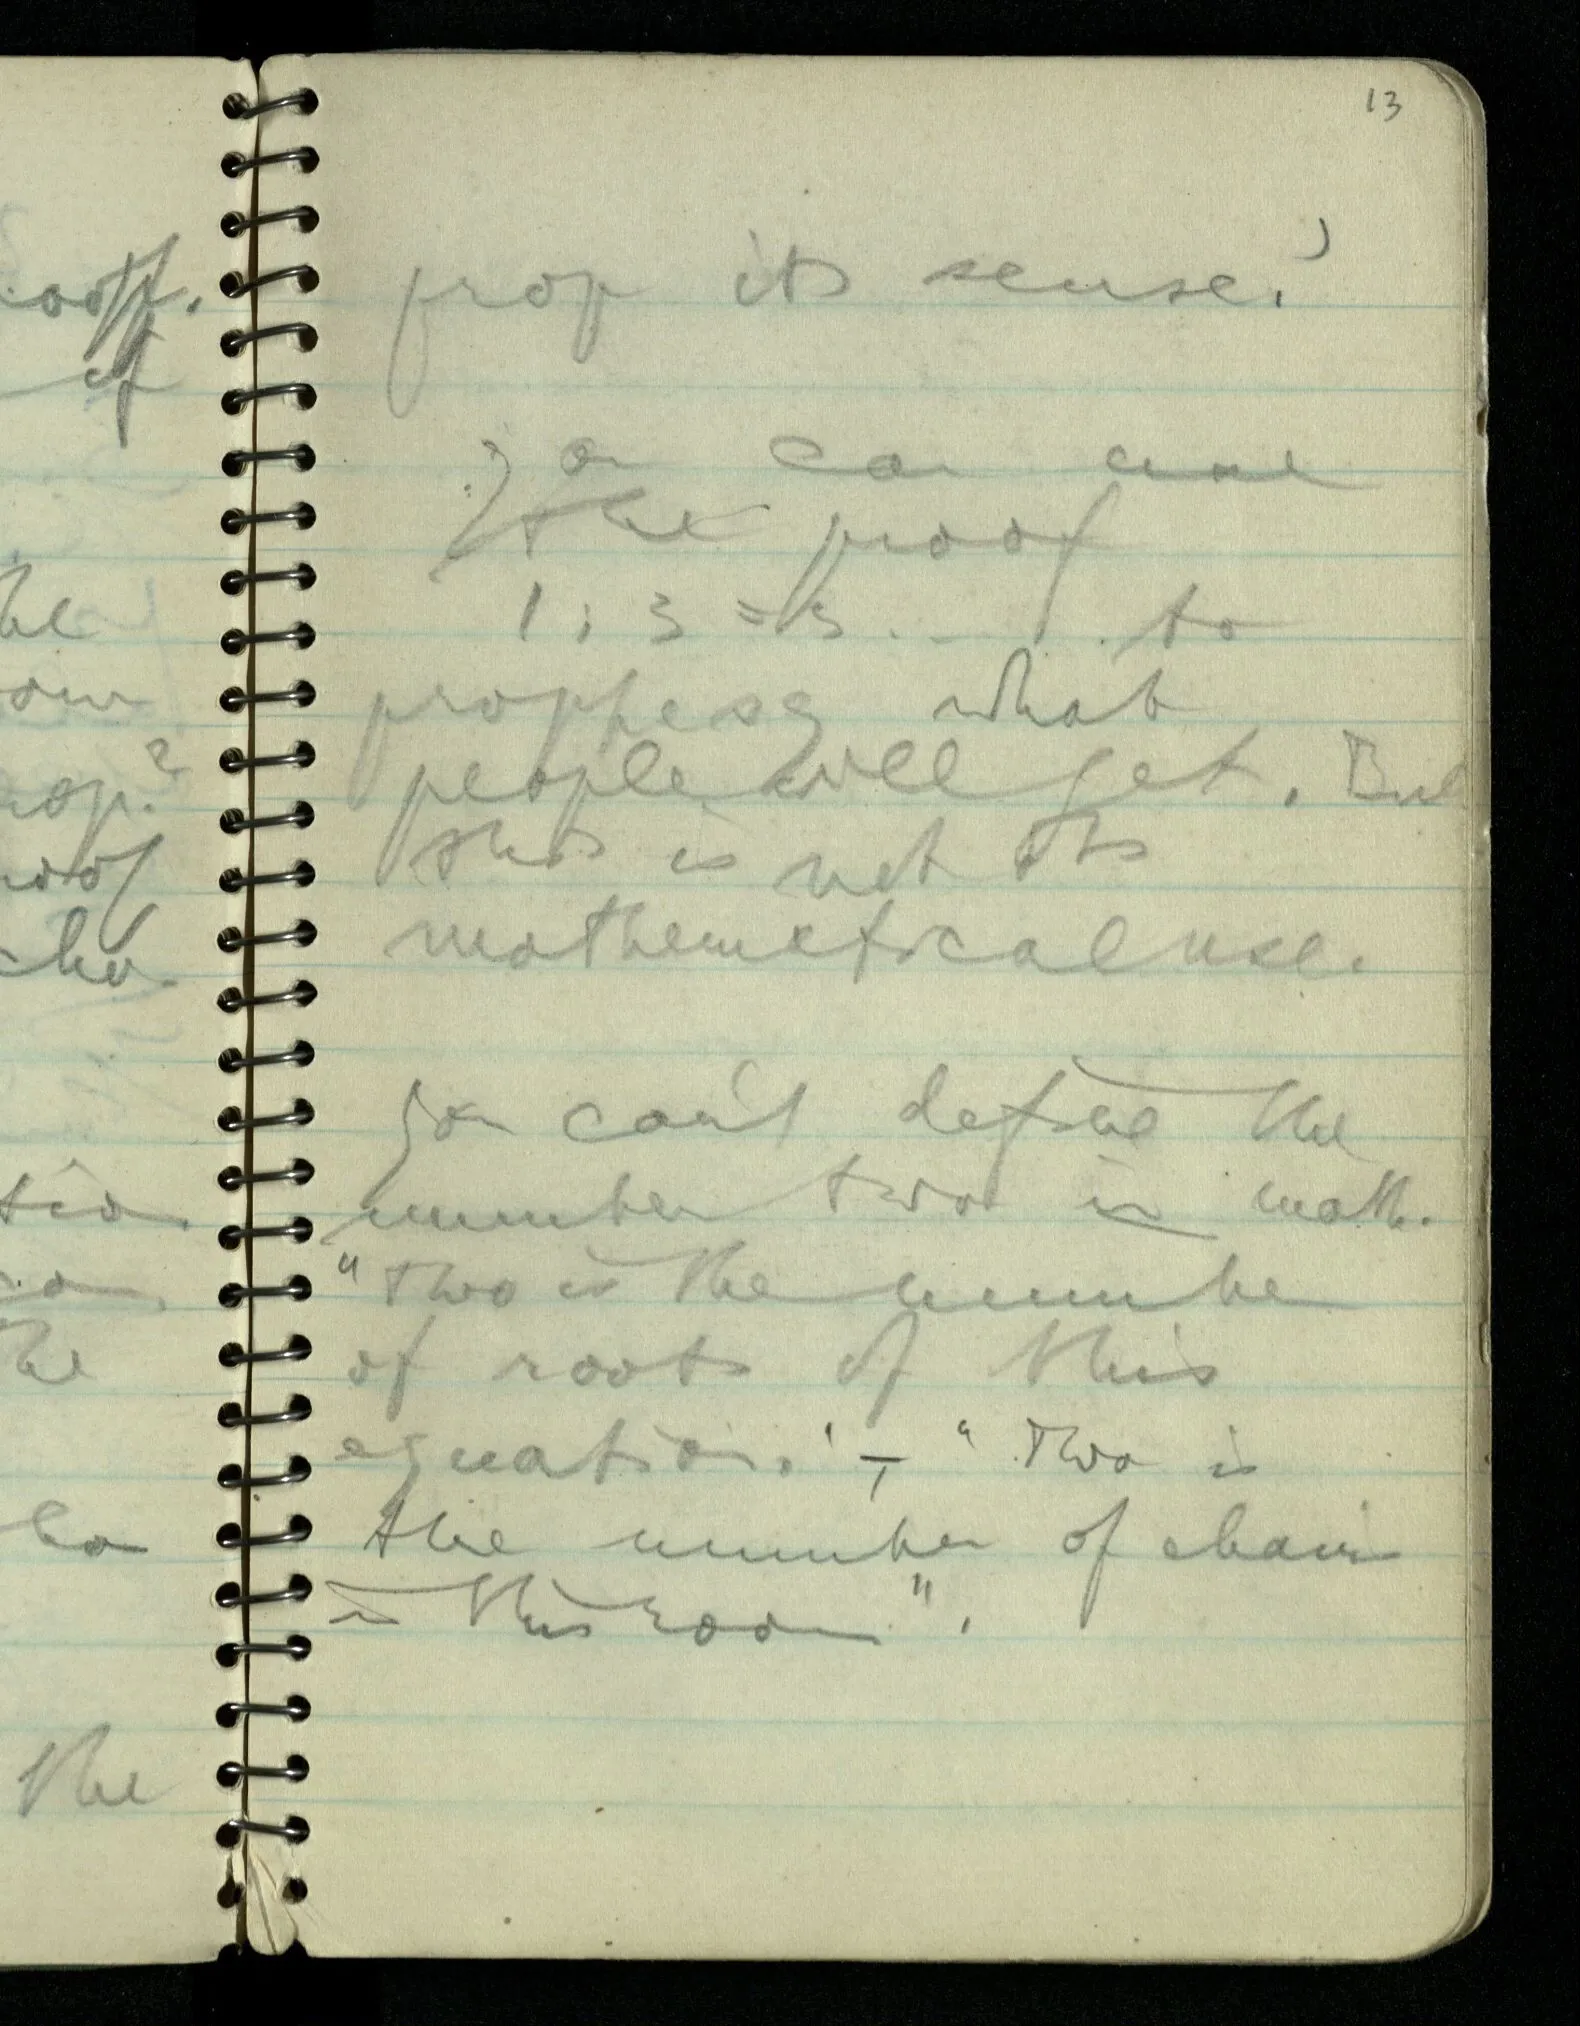 13
prop its sense.'
You can use
the proof
1 : 3 = 3 . . . . to
prophesy what
people will get. But
this is not its
mathematical use.
You can't define the
number two in math.
"Two is the number
of roots of this
equation.' – "Two is
the number of chairs
in this room".
he
prop.?
proof
the
the